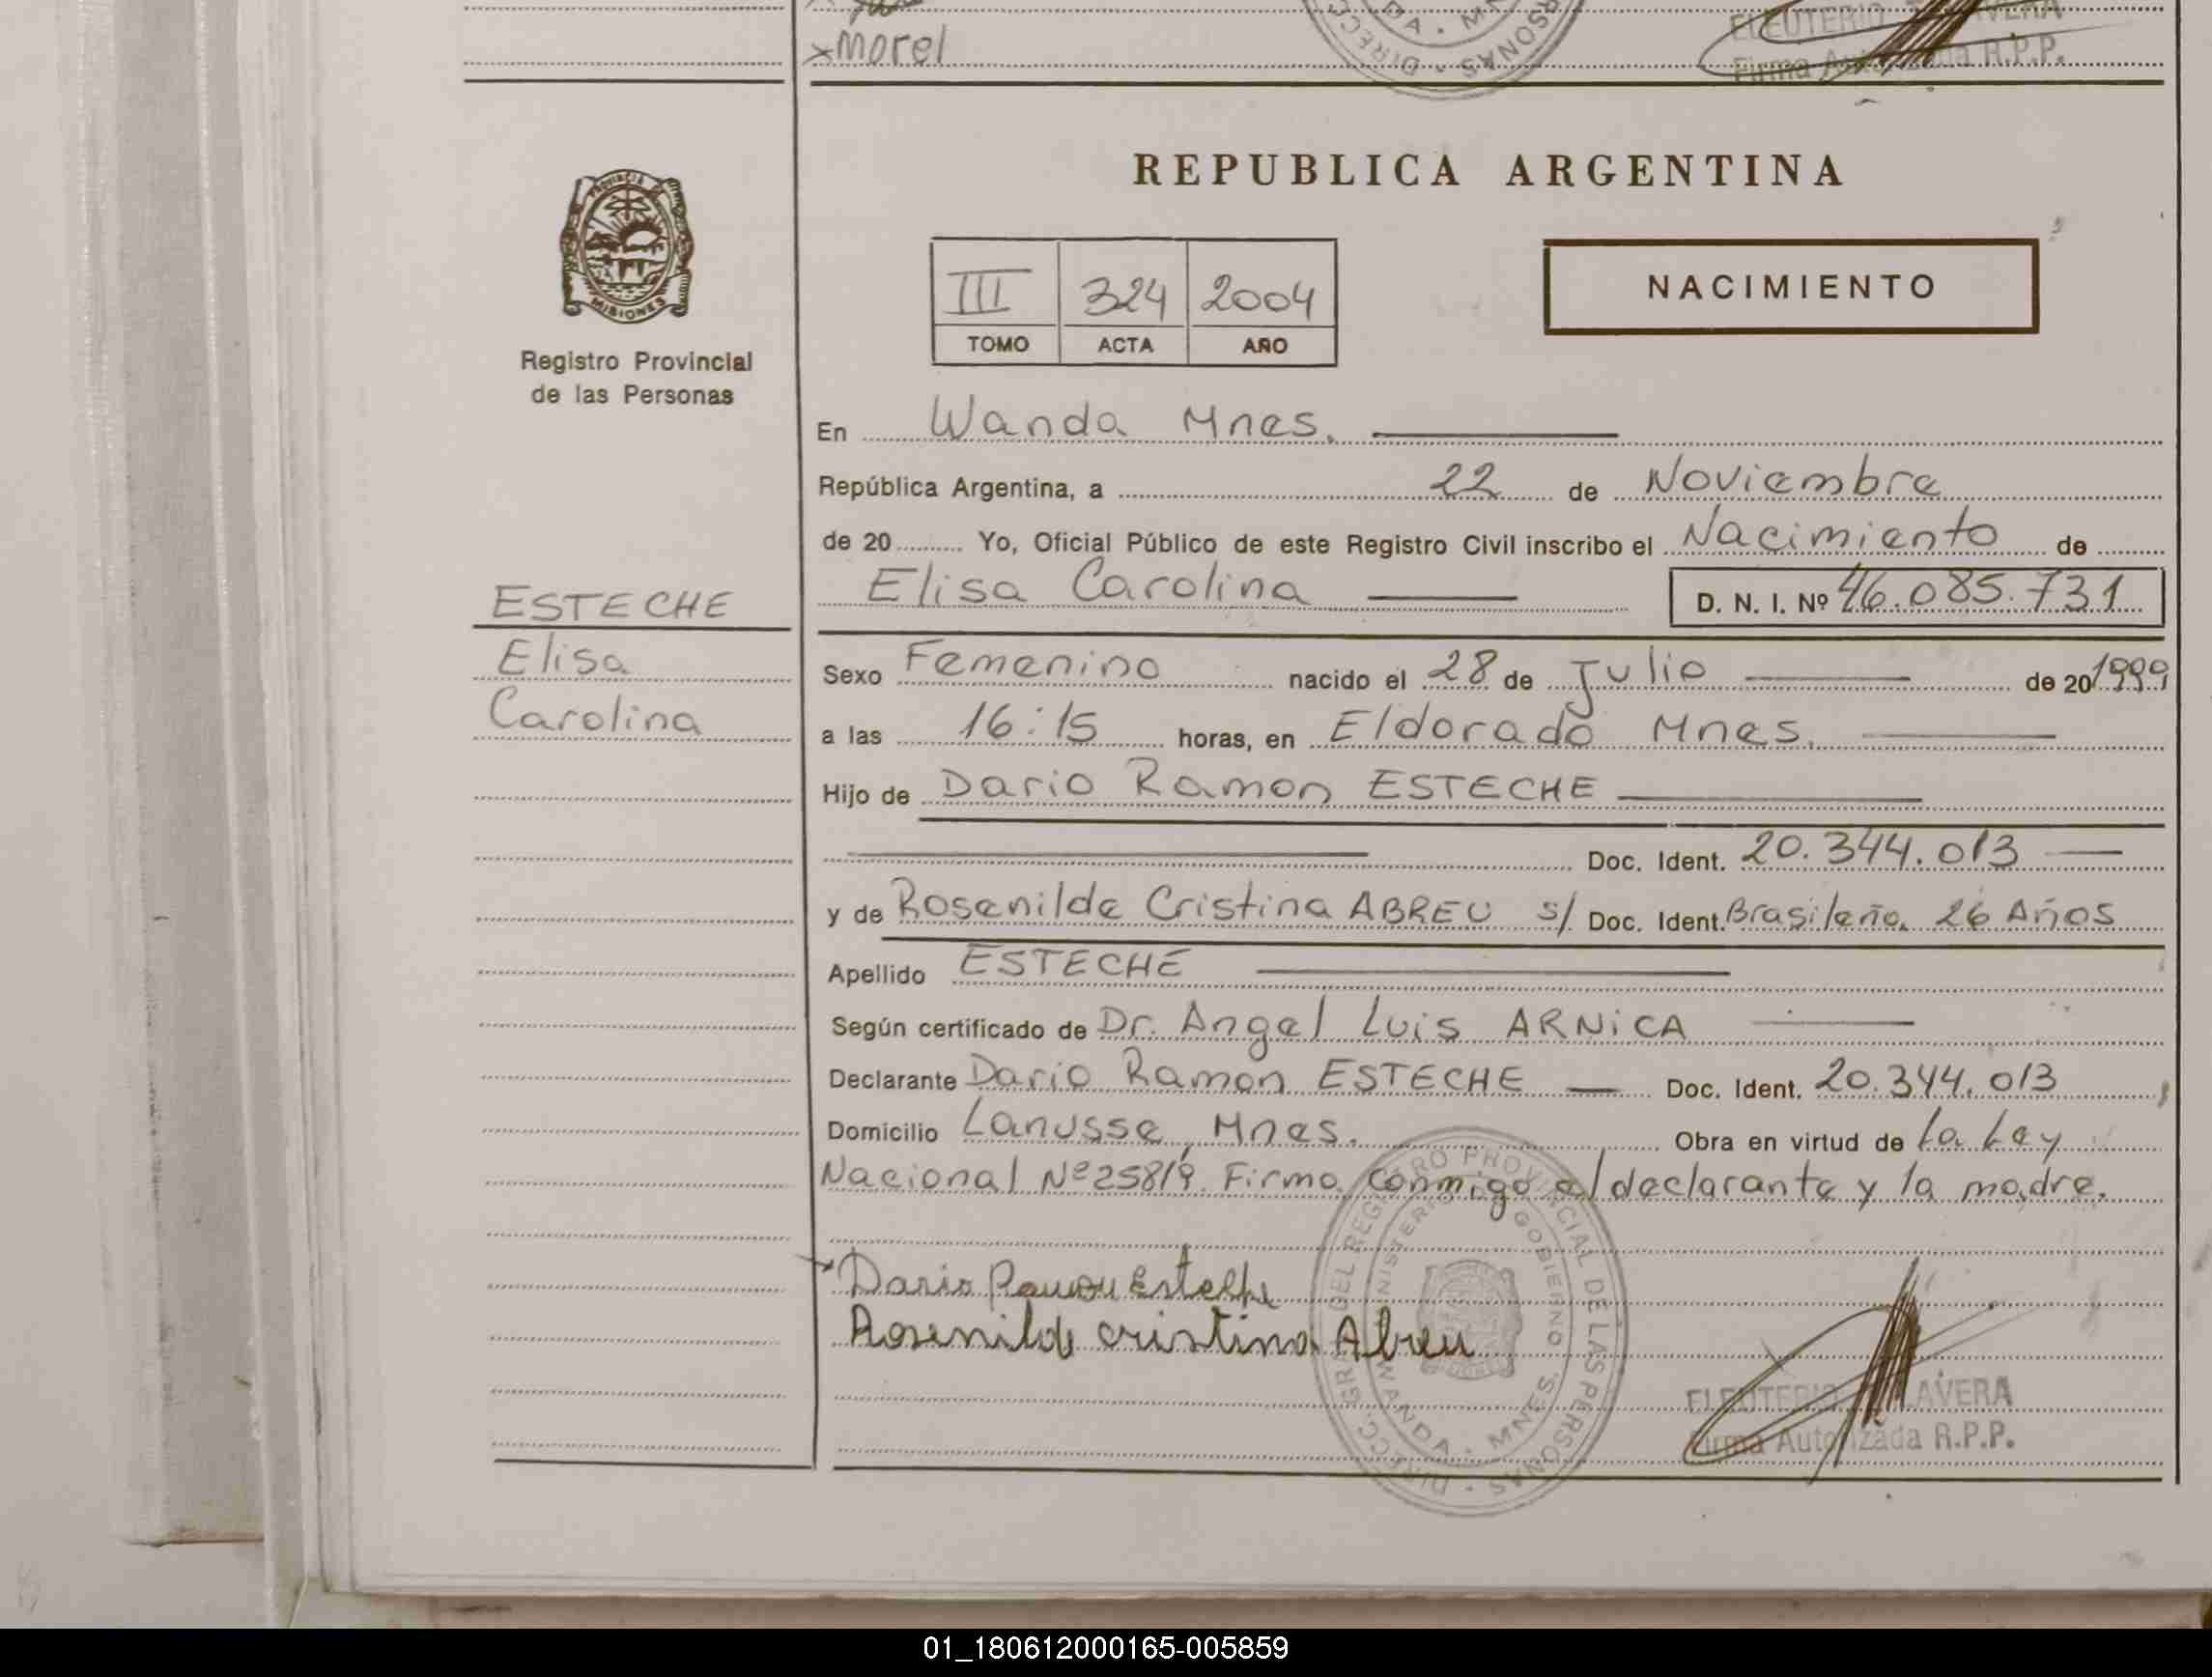 xMorel
ELEUTERIO TALAVERA
Firma Autorizada R.P.P.
REPUBLICA ARGENTINA
PROVINCIA
MISIONES
Registro Provincial
de las Personas
III 324 2004
TOMO ACTA AÑO
NACIMIENTO
En Wanda Mnes.
República Argentina, a 22 de Noviembre
de 20 Yo, Oficial Público de este Registro Civil inscribo el Nacimiento de
Elisa Carolina D. N. I. Nº 46.085.731
ESTECHE
Elisa
Carolina
Sexo Femenino nacido el 28 de Julio de 20 1999
a las 16:15 horas, en Eldorado Mnes.
Hijo de Dario Ramon ESTECHE
Doc. Ident. 20.344.013
y de Rosenilde Cristina ABREU s/ Doc. Ident. Brasileña. 26 Años
Apellido ESTECHE
Según certificado de Dr. Angel Luis ARNiCA
Declarante Dario Ramon ESTECHE Doc. Ident. 20.344.013
Domicilio Lanusse, Mnes. Obra en virtud de La Ley
Nacional Nº 25819. Firma conmigo el declarante y la madre.
Dario Ramon Esteche
Rosenilde cristina Abreu
DIRECC. GRAL. DEL REGISTRO PROVINCIAL DE LAS PERSONAS
MINISTERIO GOBIERNO
WANDA - MNES.
ELEUTERIO TALAVERA
Firma Autorizada R.P.P.
01_180612000165-005859